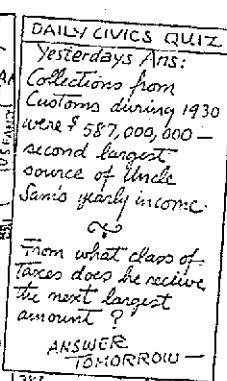 DAILY CIVICS QUIZ
Yesterdays Ans:
Collections from
Customs during 1930
were $587,000,000 —
second largest
source of Uncle
Sam's yearly income.
From what class of
Taxes does he recieve
the next largest
amount?
ANSWER
TOMORROW —